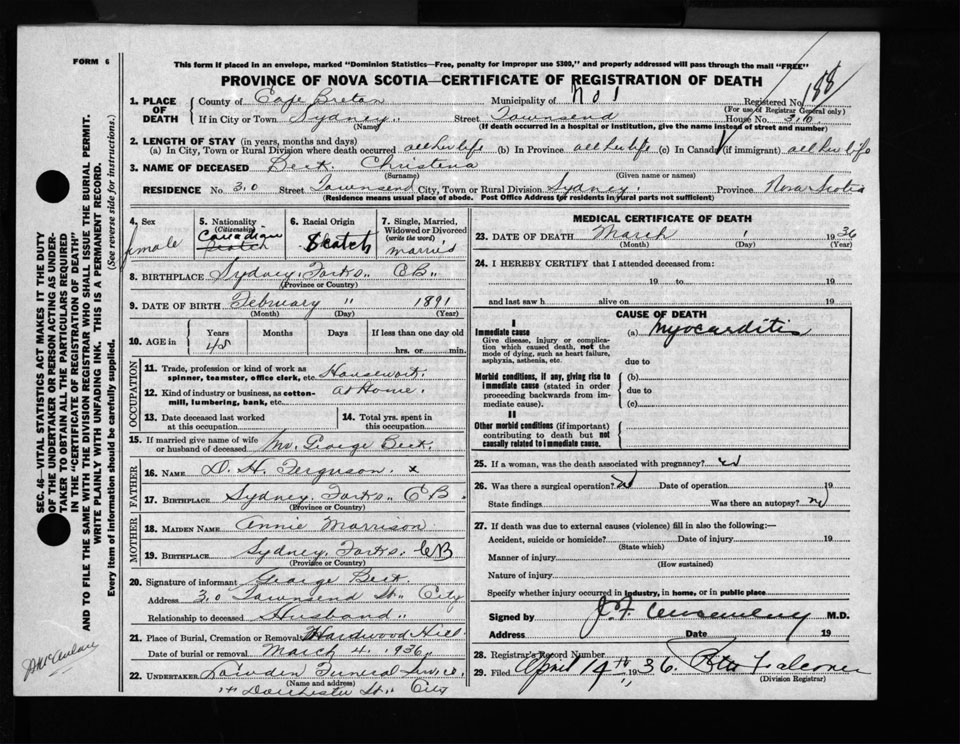 FORM 6
This form if placed in an envelope, marked "Dominion Statistics—Free, penalty for improper use $300," and properly addressed will pass through the mail "FREE"
PROVINCE OF NOVA SCOTIA—CERTIFICATE OF REGISTRATION OF DEATH
188
1. PLACE OF DEATH County of Cape Breton Municipality of No 1 Registered No.
(For use of Registrar General only)
If in City or Town Sydney Street Townsend House No. 30
(Name) (If death occurred in a hospital or institution, give the name instead of street and number)
2. LENGTH OF STAY (in years, months and days)
(a) In City, Town or Rural Division where death occurred all her life (b) In Province all her life (c) In Canada (if immigrant) all her life
3. NAME OF DECEASED Beck Christena
(Surname) (Given name or names)
RESIDENCE No 30 Street Townsend City, Town or Rural Division Sydney Province Nova Scotia
(Residence means usual place of abode. Post Office Address for residents in rural parts not sufficient)
4. Sex
female
5. Nationality
(Citizenship)
Canadian
Scotch
6. Racial Origin
Scotch
7. Single, Married, Widowed or Divorced
(write the word)
married
8. BIRTHPLACE Sydney Forks CB
(Province or County)
9. DATE OF BIRTH February " 1891
(Month) (Day) (Year)
10. AGE in
Years Months Days If less than one day old
45
hrs. or min.
OCCUPATION
11. Trade, profession or kind of work as spinner, teamster, office clerk, etc. Housework
12. Kind of industry or business, as cotton-mill, lumbering, bank, etc. at Home
13. Date deceased last worked at this occupation
14. Total yrs. spent in this occupation
15. If married give name of wife or husband of deceased Mr. George Beck
FATHER
16. NAME D. H. Ferguson x
17. BIRTHPLACE Sydney Forks CB
(Province or County)
MOTHER
18. MAIDEN NAME Annie Morrison
19. BIRTHPLACE Sydney Forks CB
(Province or County)
20. Signature of informant George Beck
Address 30 Townsend St. City
Relationship to deceased Husband
21. Place of Burial, Cremation or Removal Hardwood Hill
Date of burial or removal March 4 1936
22. UNDERTAKER Funeral City
(Name and address)
14 Dorchester St. City
MEDICAL CERTIFICATE OF DEATH
23. DATE OF DEATH March 1 1936
(Month) (Day) (Year)
24. I HEREBY CERTIFY that I attended deceased from:
19 to 19
and last saw h alive on 19
CAUSE OF DEATH
I
Immediate cause (a) Myocarditis
Give disease, injury or complication which caused death, not the mode of dying, such as heart failure, asphyxia, asthenia, etc.
due to
Morbid conditions, if any, giving rise to immediate cause (stated in order proceeding backwards from immediate cause).
(b)
due to
(c)
II
Other morbid conditions (if important) contributing to death but not causally related to immediate cause.
25. If a woman, was the death associated with pregnancy? no
26. Was there a surgical operation? no Date of operation 19
State findings Was there an autopsy? no
27. If death was due to external causes (violence) fill in also the following:—
Accident, suicide or homicide? Date of injury 19
(State which)
Manner of injury
(How sustained)
Nature of injury
Specify whether injury occurred in industry, in home, or in public place
Signed by M.D.
Address Date 19
28. Registrar's Record Number
29. Filed April 14th 1936 Falconer
(Division Registrar)
SEC. 46—VITAL STATISTICS ACT MAKES IT THE DUTY
OF THE UNDERTAKER OR PERSON ACTING AS UNDER-
TAKER TO OBTAIN ALL THE PARTICULARS REQUIRED
IN THE "CERTIFICATE OF REGISTRATION OF DEATH"
AND TO FILE THE SAME WITH THE DIVISION REGISTRAR WHO SHALL ISSUE THE BURIAL PERMIT.
WRITE PLAINLY WITH UNFADING INK. THIS IS A PERMANENT RECORD.
Every item of information should be carefully supplied. (See reverse side for instructions.)